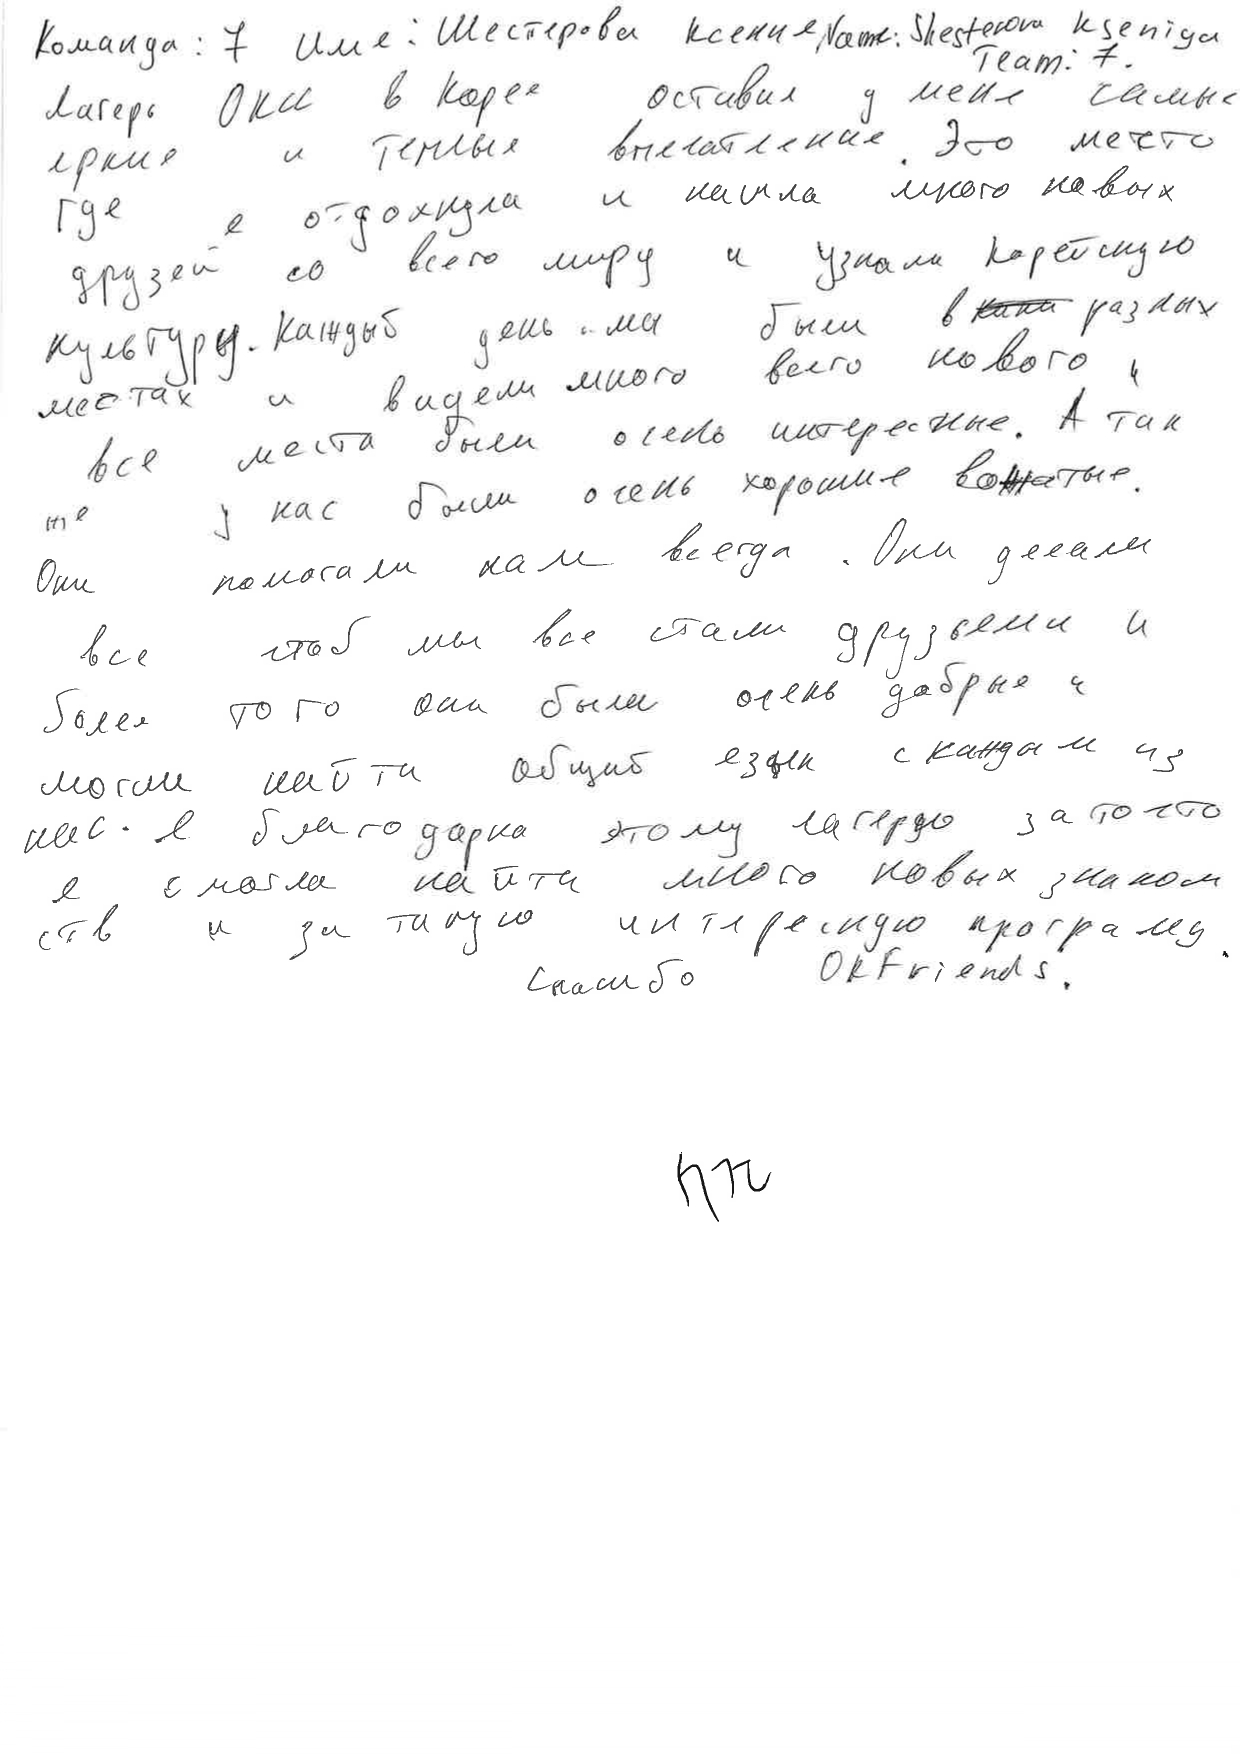 Команда: 7 Име: Шестерова Ксение Name: Shesterova Kseniya
Team: 7.
Лагерь Оки в Корее оставил у мене самые
еркие и теплые впечатление. Это место
где е отдохнула и нашла много новых
друзей со всего миру и узнала Корейскую
культуру. Каждый день ма были в разных
местах и видели много всего нового и
все места были очень интересные. А так
же у нас были очень хорошие вожатые.
Они помогали нам всегда. Они делали
все чтоб мы все стали друзьеми и
более того они были очень добрые и
могли найти общий език с каждым из
нас. Е благодарна этому лагерю за то что
е смогла найти много новых знаком
ств и за такую интересную програму.
Спасибо OKFriends.